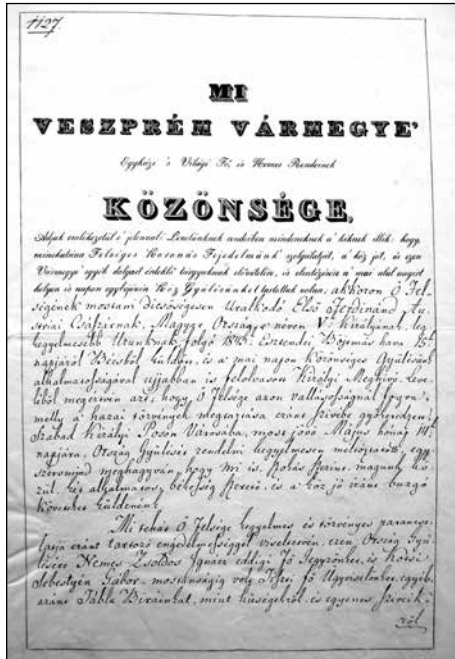 1127.
MI
VESZPRÉM VÁRMEGYE'
Egyházi 's Világi Fő, és Nemes Rendeinek
KÖZÖNSÉGE,
Adjuk emlékezetül e' jelenvaló Levelünknek rendiben mindeneknek a' kiknek illik: hogy
minekutánna Felséges Koronás Fejedelmünk' szolgálatját, a' köz jót, és ezen
Vármegye' ügyeit illető tárgyaknak elővételére, és elintézésére a' mai alul megírt
helyen és napon egybejövén Köz Gyűlésünket tartottuk volna, akkoron Ő Fel-
ségének mostani dicsőségesen Uralkodó Első Ferdinánd Au-
striai Császárnak, Magyar Ország e néven V. Királyának, leg
kegyelmesebb Urunknak folyó 1843. Esztendei Böjtmás hava 15
napjáról Bécsből küldött, és a' mai napon közönséges Gyűlésünk
alkalmatosságával újjabban is felolvasott Királyi Meghívó leve-
léből megértvén azt, hogy Ő Felsége azon vallásosságnál fogva
melly a' hazai törvények megtartása eránt szívébe gyökerezett,
Szabad Királyi Poson Városába, most jövő Május hónap 14
napjára, Ország Gyűlését rendelni kegyelmesen méltóztatott, egy-
szersmind meghagyván, hogy mi is
alkalmatos, békesség és a' köz jó iránt buzgó
Követeket küldenénk,
Mi tehát Ő Felsége kegyelmes és törvényes parancso-
latja eránt tartozó engedelmességgel viseltetvén, ezen Ország Gyű-
lésére Nemes Zsoldos Ignácz eddigi Fő Jegyzőnket, és Kocsi
Sebestyén Gábor mostanságig volt Fő Ügyviselőnket, egyéb-
aránt Tábla Bíráinkat, mint hűségekről, és egyenes szívek-
ről